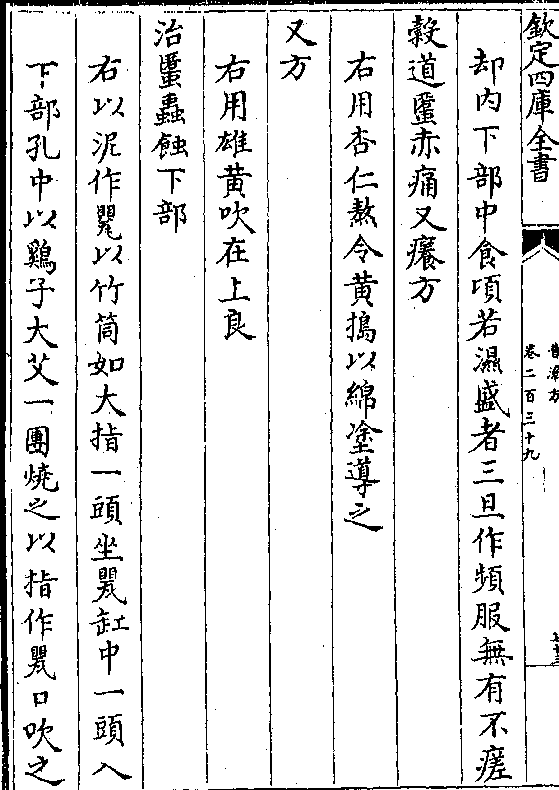 欽定四庫全書
普濟方
卷二百三十九
却内下部中食頃若濕盛者三旦作頻服無有不瘥
榖道䘌赤痛又癢方
右用杏仁熬令黄搗以綿塗導之
又方
右用雄黄吹在上良
治䘌蟲蝕下部
右以泥作甖以竹筒如大指一頭坐甖缸中一頭入
下部孔中以鷄子大艾一團燒之以指作甖口吹之